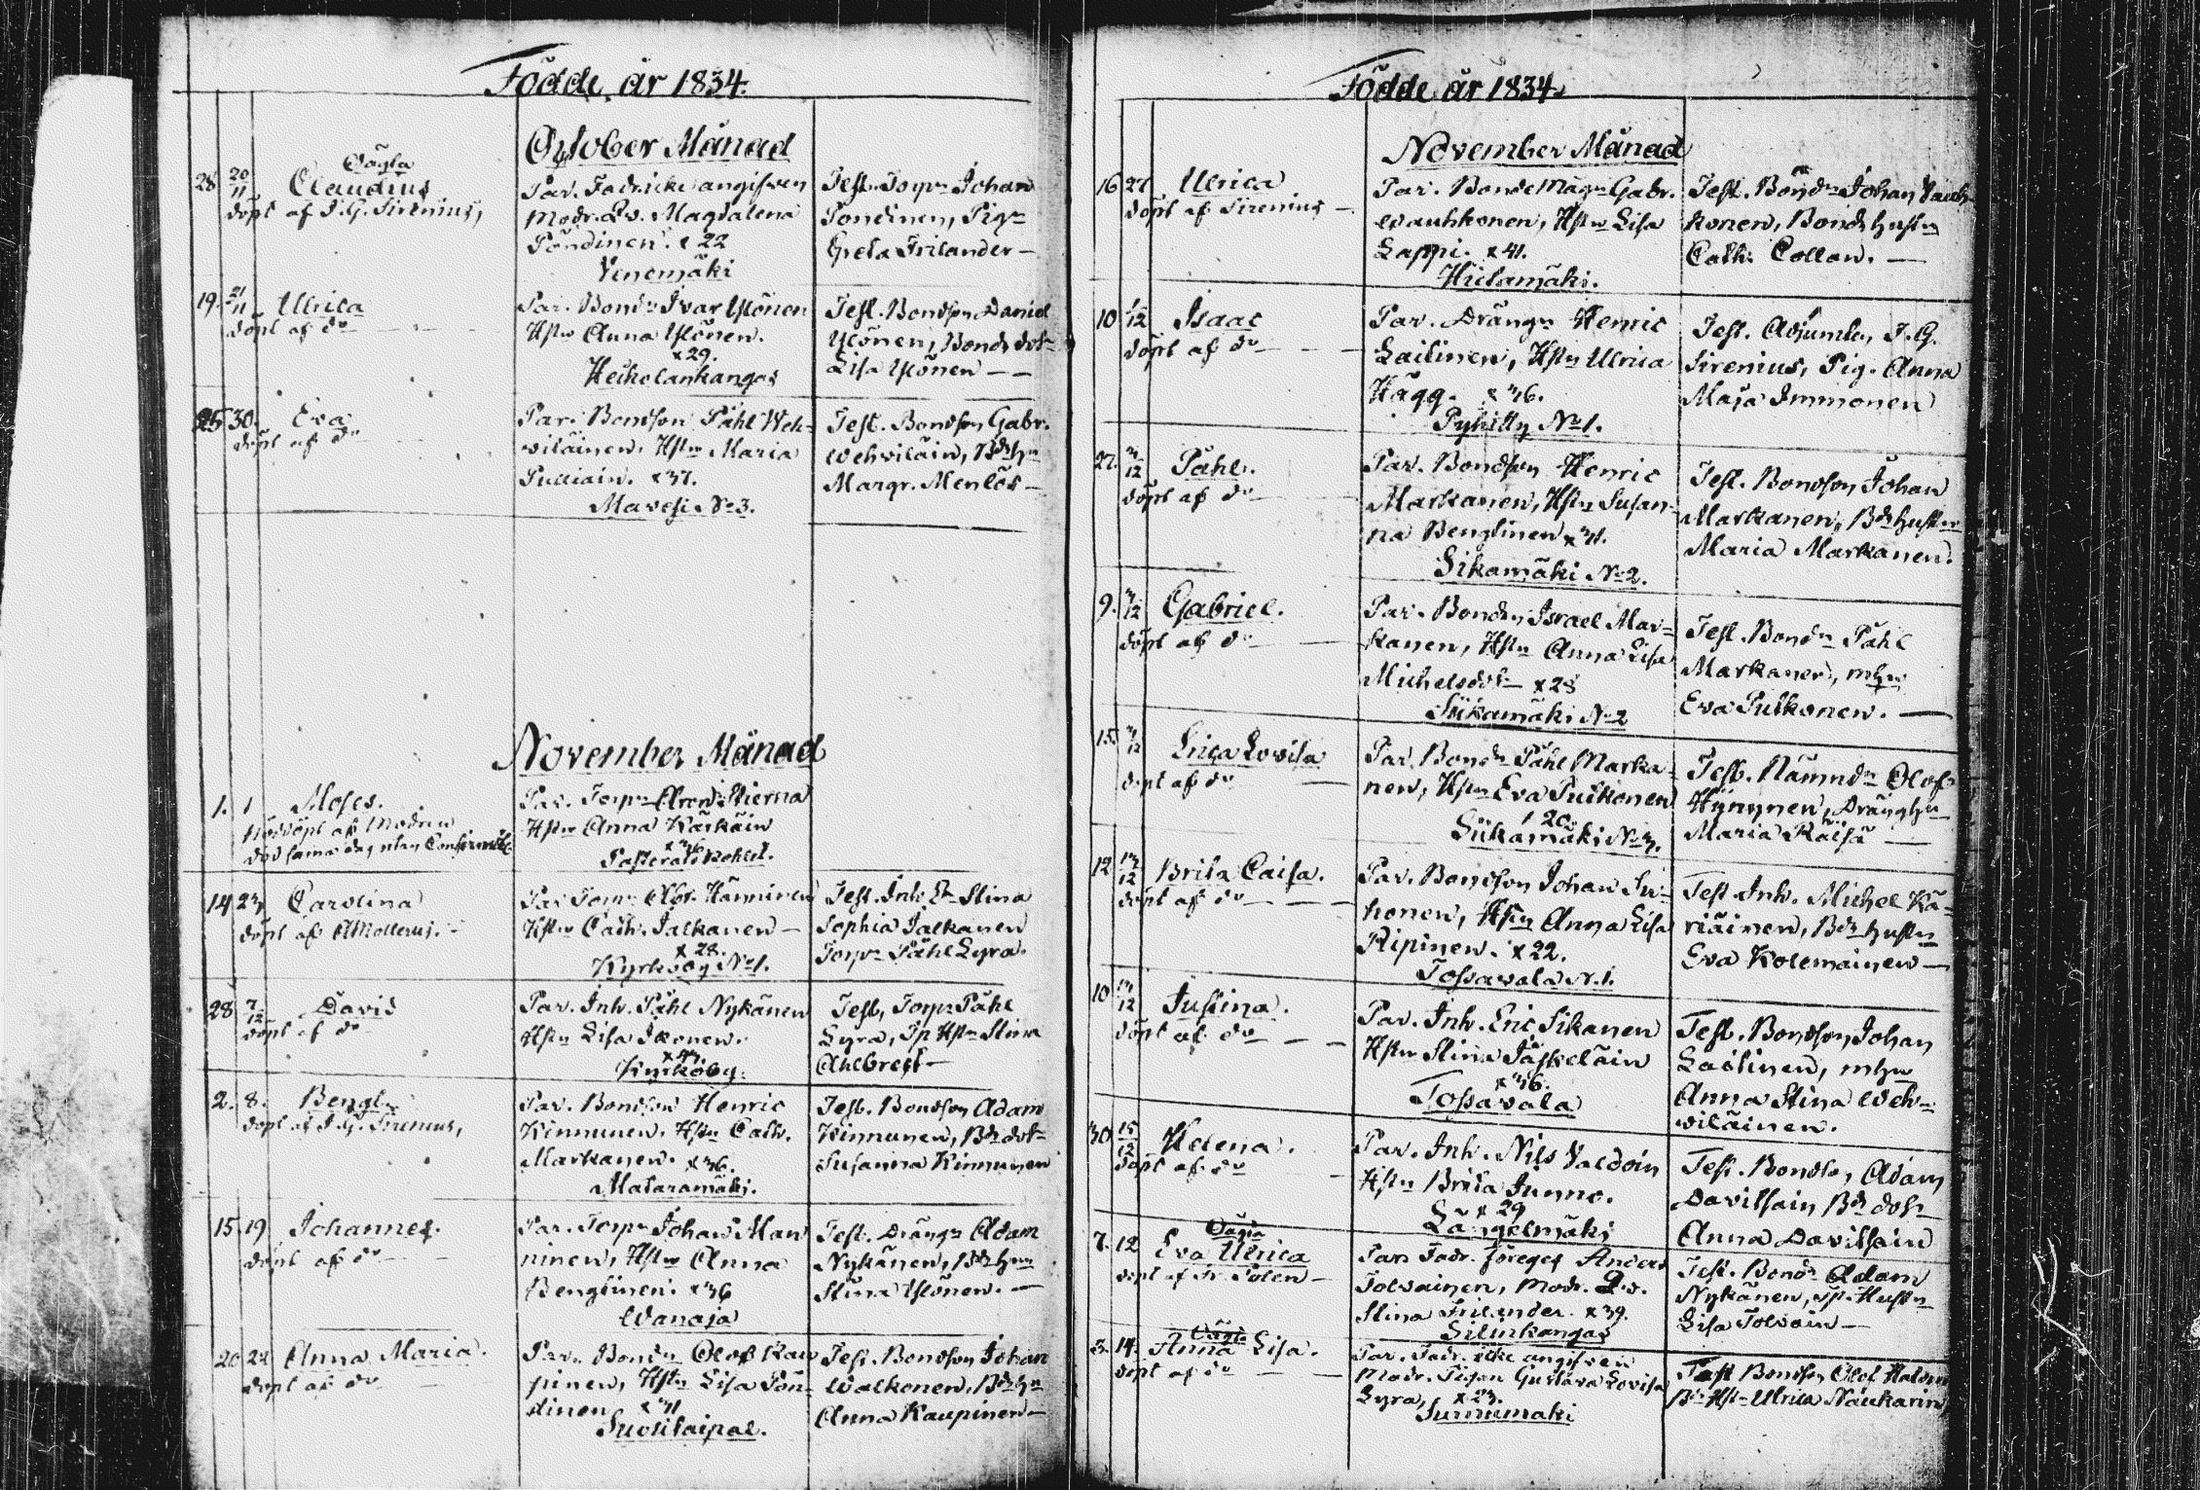 Födde år 1834.
October Månad
Oägta
28 20/11 Claudius
döpt af J. G. Sirenius,
Par. Fadr. icke angifven
Modr. Qv. Magdalena
Pöndinen. x 22
Venemäki
Test. Torpr Johan
Pöndinen, Pig.
Greta Frilander —
19. 21/11 Ulrica
döpt af do
Par. Bondn Ivar Ylönen
Hstru Anna Ylönen.
x 29.
Heikolankangas
Test. Bondson Daniel
Ylönen, Bonds dotr
Lisa Ylönen — —
25 30. Eva
döpt af do
Par. Bondson Påhl Weh-
viläinen, Hstru Maria
Pulliain. x 37.
Mavesi No 3.
Test. Bondson Gabr.
Wehviläin, Bdhu
Margr. Menlös —
November Månad
1. 1 Moses.
Nöddöpt af Modren
död samma dag utan
Par. Torpr Stierna
Hstru Anna Kärkäin
Test. Inh. En. Stina
14 23 Carolina
döpt af AMollerus.
Par. Torpr Abr. Hänninen
Hstru Cath. Jalkanen —
x 28.
Kyrkoby No 1.
Sophia Jalkanen
Torpr Påhl Lyra.
28 7/12 David
döpt af do
Par. Inh. Påhl Nykänen
Hstru Lisa Ikonen.
Kyrkoby.
Test. Torpr Påhl
Lyra, Sp Hstru Stina
Ahlbrest —
2. 8. Bengt.
döpt af J. G. Sirenius,
Par. Bondson Henric
Kinnunen, Hstru Cath.
Markanen. x 36.
Mataramäki.
Test. Bondson Adam
Kinnunen, Bd dotr
Susanna Kinnunen
15 19 Johannes.
döpt af do
Par. Torpr Johan Man
ninen, Hstru Anna
Bengtinen. x 36
Wanaja
Test. Drängn Adam
Nykänen, Bdhu
Stina Ylönen. —
20 24 Anna Maria.
döpt af do
Par. Bondn Olof Kau
pinen, Hstru Lisa Pön-
dinen x 31
Suositaipal.
Test. Bondson Johan
Walkonen, Bdhu
Anna Kaupinen —
Födde år 1834.
November Månad
16 27 Ulrica
döpt af Sirenius —
Par. Bonde Mågn Gabr.
Wauhkonen, Hstru Lisa
Lappi. x 41.
Hietamäki.
Test. Bondn Johan Vauh-
konen, Bonds hustru
Cath. Collan. —
10 1/12 Isaac
döpt af do
Par. Drängn Henric
Laitinen, Hstru Ulrica
Hägg. x 36.
Pyhitty No 1.
Test. Adjunkten J. G.
Sirenius, Pig. Anna
Maja Immonen
27. 3/12 Påhl.
döpt af do
Par. Bondson Henric
Markanen, Hstru Susan-
na Bengtinen x 31.
Siikamäki No 2.
Test. Bondson Johan
Markanen, Bd hustru
Maria Markanen.
9. 7/12 Gabriel.
döpt af do
Par. Bondn Israel Mar-
kanen, Hstru Anna Lisa
Michelsdotr x 28
Siikamäki No 2
Test. Bondn Påhl
Markanen, mhu
Eva Pulkonen. —
15. 7/12 Erica Lovisa
döpt af do
Par. Bondn Påhl Marka-
nen, Hstru Eva Pulkonen
Siikamäki No 3.
Test. Nämndn Olof
Hynynen, Dränghu
Maria Räisä —
12 13/12 Brita Caisa.
döpt af do
Par. Bondson Johan Su-
honen, Hstru Anna Lisa
Ripinen. x 22.
Tossavala N. 1.
Test Inh. Michel Kä-
riäinen, Bd hustru
Eva Kolemainen —
10 13/12 Justina.
döpt af do
Par. Inh. Eric Sikanen
Hstru Stina Jäskeläin
x 36.
Tossavala
Test. Bondson Johan
Laitinen, mhu
Anna Stina Weh-
viläinen.
30 15/12 Helena.
döpt af do
Par. Inh. Nils Valdoin
Hstru Brita Junno.
x 29
Längelmäki
Test. Bondso, Adam
Davitsain Bd dotr
Anna Davitsain
Oägta
7. 12 Eva Ulrica
döpt af Fr. Polen —
Par. Fadr. föreges Anders
Tolvainen, Modr. Qv.
Stina Frilander. x 39.
Silinkangas
Test. Bondn Adam
Nykänen, Sp. Hustru
Lisa Tolvain —
Oägta
3. 14. Anna Lisa.
döpt af do
Par. Fadr. icke angifven
Modr. Pigan Gustava Lovisa
Lyra, x 23.
Surnumäki
Test Bondson Olof
Bd Hst Ulrica Naukarin